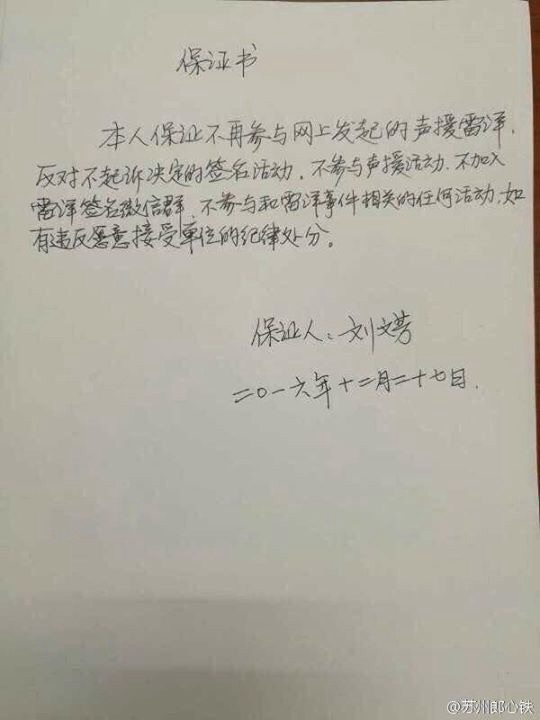 保证书
本人保证不再参与网上发起的声援雷洋,
反对不起诉决定的签名活动,不参与声援活动.不加入
雷洋签名微信群,不参与和雷洋事件相关的任何活动,如
有违反愿意接受单位的纪律处分。
保证人:刘文芳
二〇一六年十二月二十七日.
@苏州郎心铁